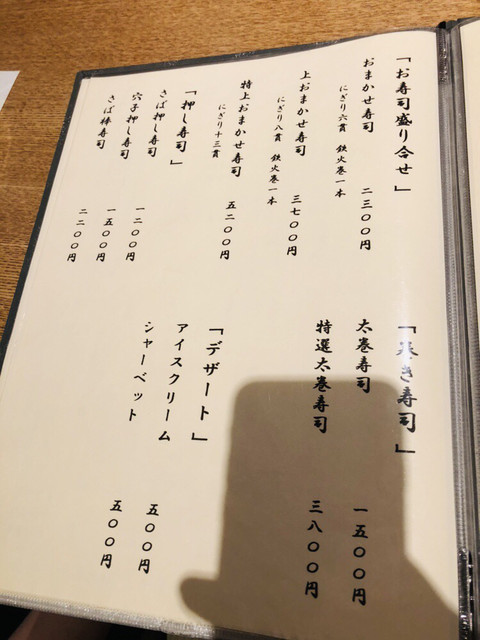 「お寿司盛り合せ」
おまかせ寿司 二三〇〇円
にぎり六貫 鉄火巻一本
上おまかせ寿司 三七〇〇円
にぎり八貫 鉄火巻一本
特上おまかせ寿司 五二〇〇円
にぎり十三貫
「押し寿司」
さば押し寿司 一二〇〇円
穴子押し寿司 一五〇〇円
さば棒寿司 二二〇〇円
「巻き寿司」
太巻寿司 一五〇〇円
特選太巻寿司 三八〇〇円
「デザート」
アイスクリーム 五〇〇円
シャーベット 五〇〇円